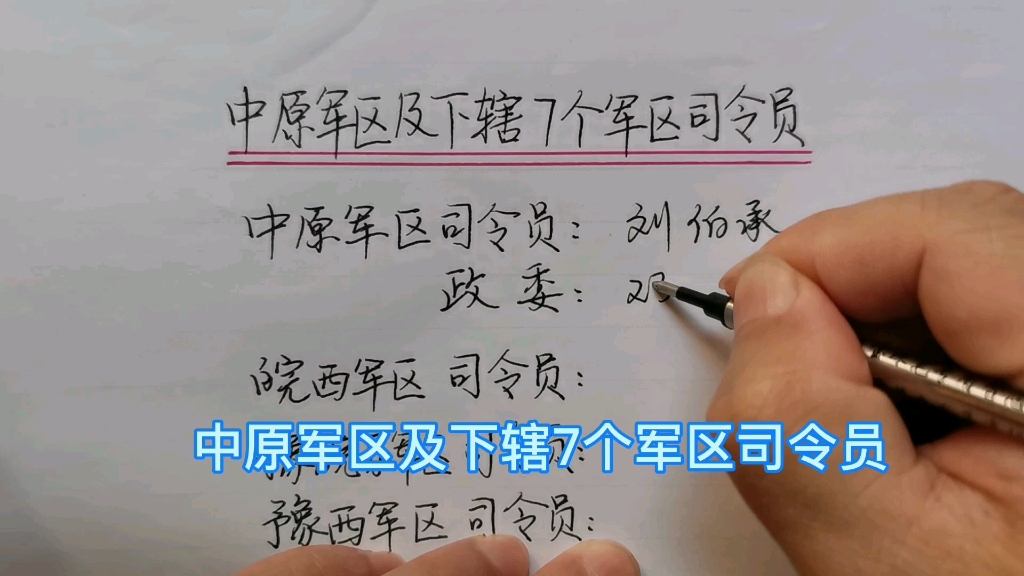 中原军区及下辖7个军区司令员
中原军区司令员：刘伯承
政委：
皖西军区 司令员：
中原军区及下辖7个军区司令员
豫西军区 司令员：